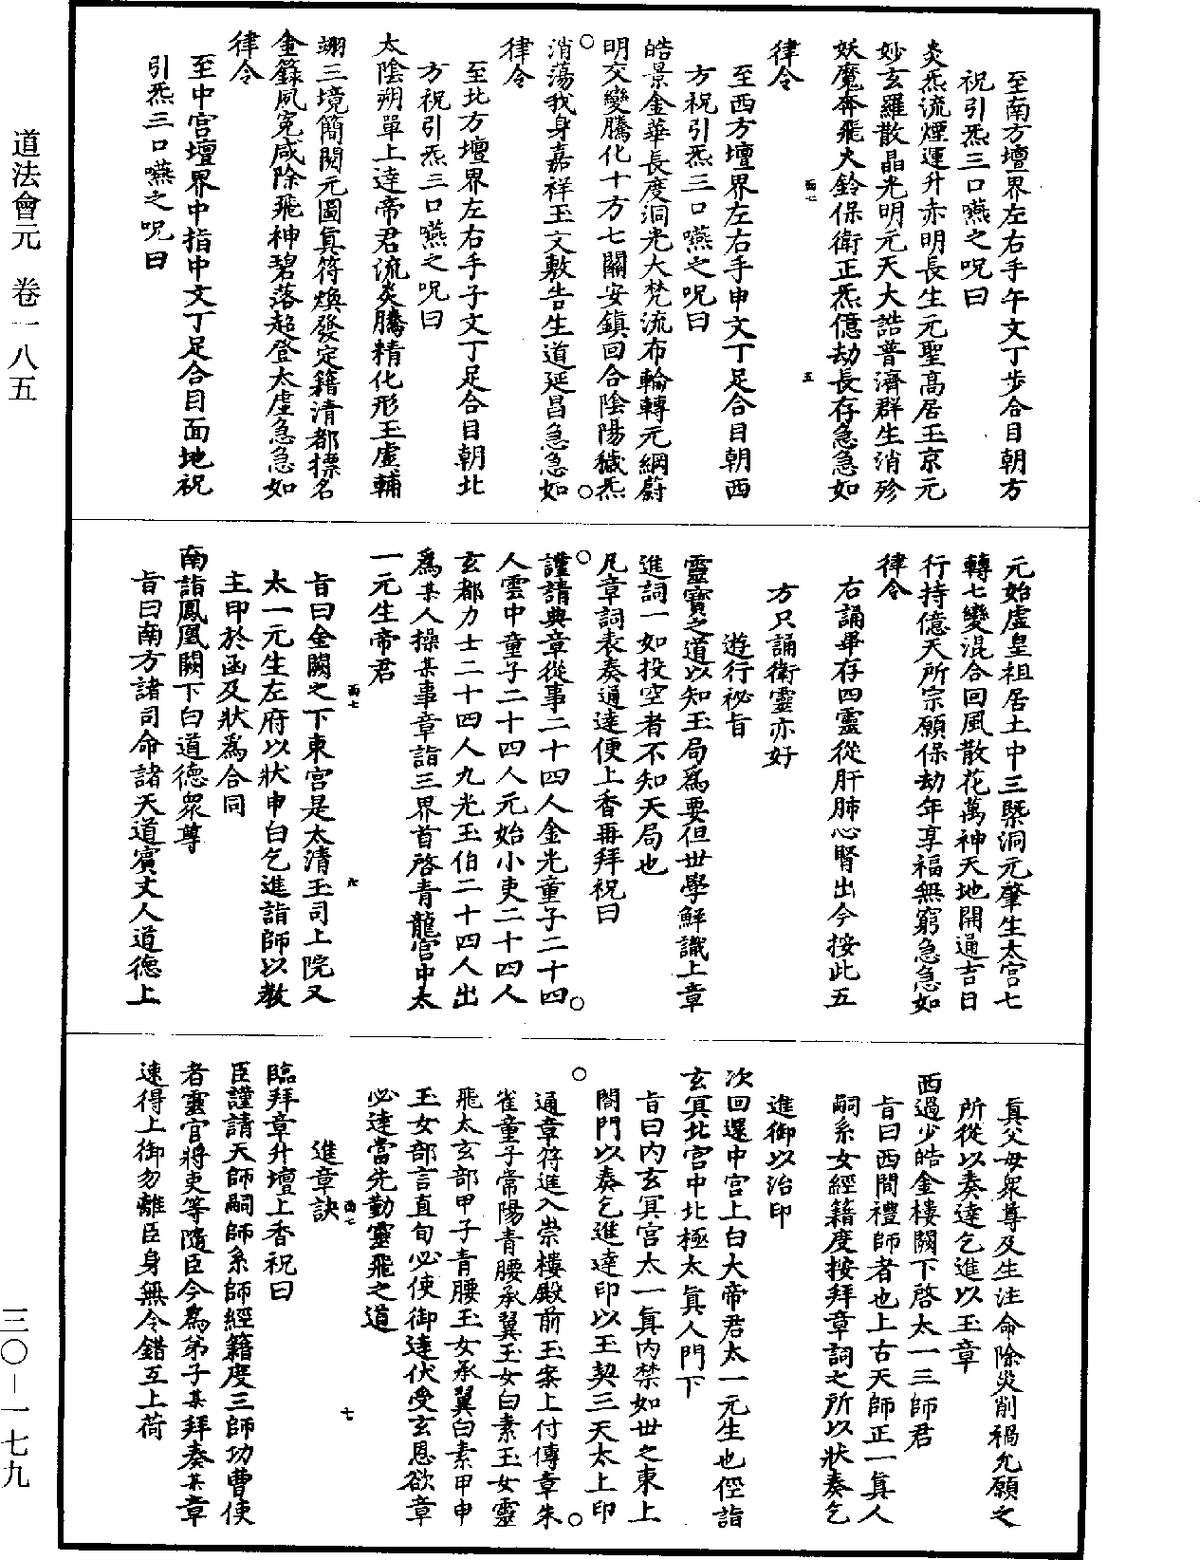 至南方壇界左右手午文丁步合目朝方
祝引炁三口嚥之呪曰
炎炁流煙運升赤明長生元聖高居玉京元
妙玄羅散晶光明元天大誥普濟群生消殄
妖魔奔飛火鈴保衛正炁億劫長存急急如
律令
至西方壇界左右手申文丁足合目朝西
方祝引炁三口嚥之呪曰
皓景金華長度洞光大梵流布輪轉元綱蔚
明交變騰化十方七關安鎮回合陰陽穢炁
消蕩我身嘉祥玉文敷告生道延昌急急如
律令
至北方壇界左右手子文丁足合目朝北
方祝引炁三口嚥之呪曰
太陰朔單上達帝君流炎騰精化形玉虛輔
翊三境簡閱元圖真符煥發定籍清都摽名
金籙夙冤咸除飛神碧落超登太虛急急如
律令
至中宮壇界中指中文丁足合目面地祝
引炁三口嚥之呪曰
元始虛皇祖居土中三槩洞元肇生太宮七
轉七變混合回風散花萬神天地開通吉日
行持億天所宗願保劫年享福無窮急急如
律令
右誦畢存四靈從肝肺心腎出今按此五
方只誦衛靈亦好
遊行祕旨
靈寶之道以知玉局爲要但世學鮮識上章
進詞一如投空者不知天局也
凡章詞表奏通達便上香再拜祝曰
謹請典章從事二十四人金光童子二十四
人雲中童子二十四人元始小吏二十四人
玄都力士二十四人九光玉伯二十四人出
爲某人操某事章詣三界首啓青龍宮中太
一元生帝君
旨曰金闕之下東宮是太清玉司上院又
太一元生左府以狀申白乞進詣師以教
主印於函及狀爲合同
南詣鳳凰闕下白道德衆尊
旨曰南方諸司命諸天道賓丈人道德上
真父母衆尊及生注命除災削禍允願之
所從以奏達乞進以玉章
西過少皓金樓闕下啓太一三師君
旨曰西間禮師者也上古天師正一真人
嗣系女經籍度按拜章詞之所以狀奏乞
進御以治印
次回還中宮上白大帝君太一元生也徑詣
玄冥北宮中北極太真人門下
旨曰內玄冥宮太一真內禁如世之東上
閤門以奏乞進達印以玉契三天太上印
通章符進入崇樓殿前玉案上付傳章朱
雀童子常陽青腰承翼玉女白素玉女靈
飛太玄部甲子青腰玉女承翼白素甲申
玉女部言直旬必使御達伏受玄恩欲章
必達當先勤靈飛之道
進章訣
臨拜章升壇上香祝曰
臣謹請天師嗣師系師經籍度三師功曹使
者靈官將吏等隨臣今爲弟子某拜奏某章
速得上御勿離臣身無令錯互上荷
道法會元 卷一八五
三〇-一七九